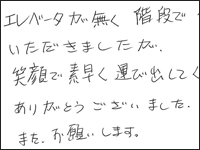 エレベータが無く 階段で
いただきましたが、
笑顔で素早く運び出してく
ありがとうございました。
また、お願いします。